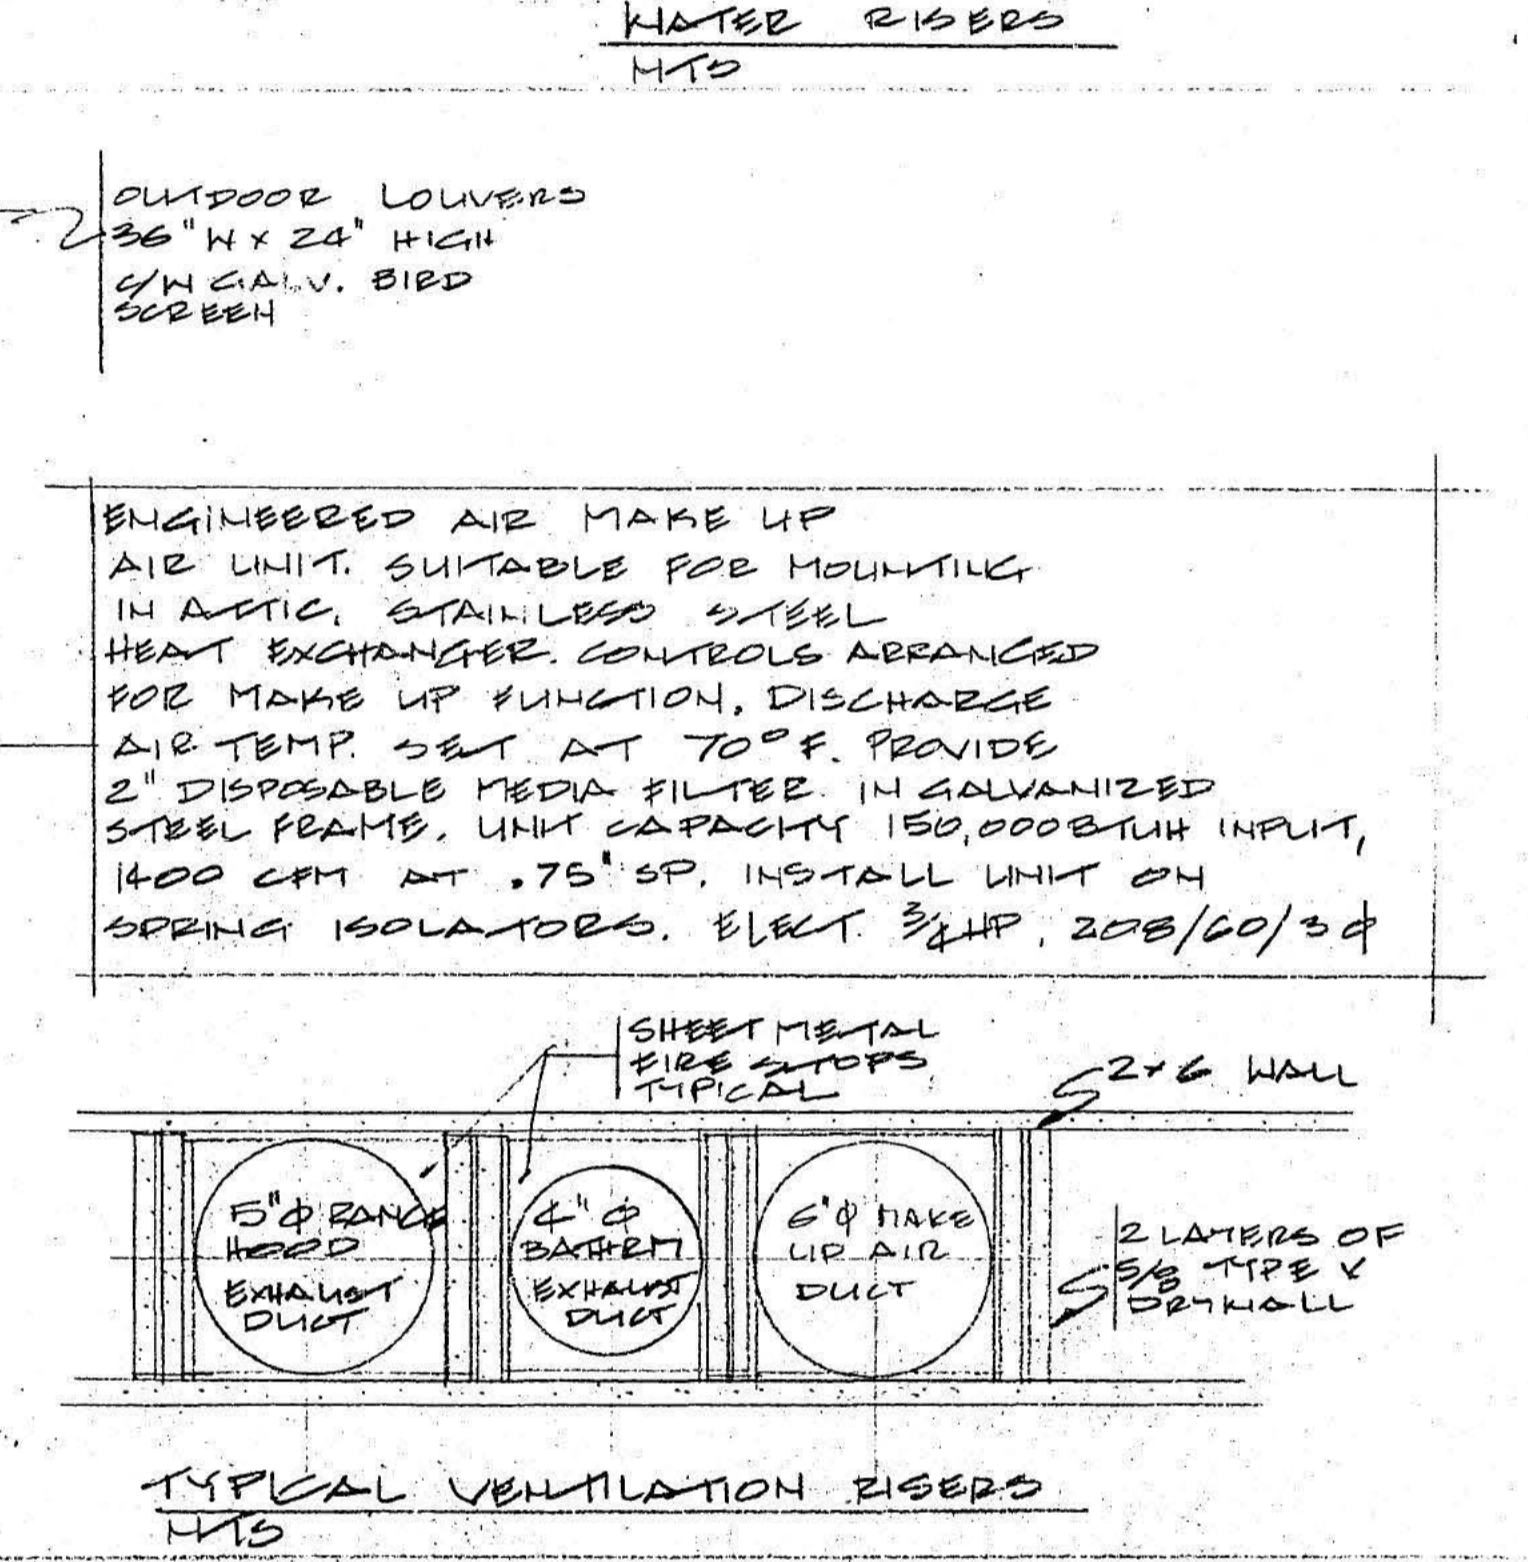 WATER RISERS
NTS
OUTDOOR LOUVERS
36" W x 24" HIGH
C/W GALV. BIRD
SCREEN
ENGINEERED AIR MAKE UP
AIR UNIT. SUITABLE FOR MOUNTING
IN ATTIC. STAINLESS STEEL
HEAT EXCHANGER. CONTROLS ARRANGED
FOR MAKE UP FUNCTION. DISCHARGE
AIR TEMP. SET AT 70° F. PROVIDE
2" DISPOSABLE MEDIA FILTER IN GALVANIZED
STEEL FRAME. UNIT CAPACITY 150,000 BTUH INPUT,
1400 CFM AT .75" SP. INSTALL UNIT ON
SPRING ISOLATORS. ELECT. 3/4 HP, 208/60/3 φ
SHEET METAL
FIRE STOPS
TYPICAL
2x6 WALL
5"φ RANGE
HOOD
EXHAUST
DUCT
4" φ
BATHRM
EXHAUST
DUCT
6"φ MAKE
UP AIR
DUCT
2 LAYERS OF
5/8 TYPE X
DRYWALL
TYPICAL VENTILATION RISERS
NTS